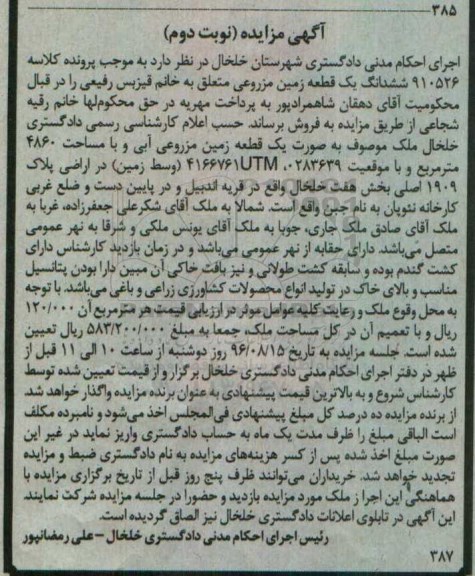 ۳۸۵
آگهی مزایده (نوبت دوم)
اجرای احکام مدنی دادگستری شهرستان خلخال در نظر دارد به موجب پرونده کلاسه
۹۱۰۵۲۶ ششدانگ یک قطعه زمین مزروعی متعلق به خانم قیزبس رفیعی را در قبال
محکومیت آقای دهقان شاهمرادپور به پرداخت مهریه در حق محکوم‌لها خانم رقیه
شجاعی از طریق مزایده به فروش برساند. حسب اعلام کارشناسی رسمی دادگستری
خلخال ملک موصوف به صورت یک قطعه زمین مزروعی آبی و با مساحت ۴۸۶۰
مترمربع و با موقعیت ۰۲۸۳۶۳۹، ۴۱۶۶۷۶۱UTM (وسط زمین) در اراضی پلاک
۱۹۰۹ اصلی بخش هفت خلخال واقع در قریه اندبیل و در پایین دست و ضلع غربی
کارخانه نئوپان به نام جبن واقع است. شمالا به ملک آقای شکرعلی جعفرزاده، غربا به
ملک آقای صادق ملک جاری، جوبا به ملک آقای یونس ملکی و شرقا به نهر عمومی
متصل می‌باشد. دارای حقابه از نهر عمومی می‌باشد و در زمان بازدید کارشناس دارای
کشت گندم بوده و سابقه کشت طولانی و نیز بافت خاکی آن مبین دارا بودن پتانسیل
مناسب و بالای خاک در تولید انواع محصولات کشاورزی زراعی و باغی می‌باشد. با توجه
به محل وقوع ملک و رعایت کلیه عوامل موثر در ارزیابی قیمت هر مترمربع آن ۱۲۰/۰۰۰
ریال و با تعمیم آن در کل مساحت ملک، جمعا به مبلغ ۵۸۳/۲۰۰/۰۰۰ ریال تعیین
شده است. جلسه مزایده به تاریخ ۹۶/۰۸/۱۵ روز دوشنبه از ساعت ۱۰ الی ۱۱ قبل از
ظهر در دفتر اجرای احکام مدنی دادگستری خلخال برگزار و از قیمت تعیین شده توسط
کارشناس شروع و به بالاترین قیمت پیشنهادی به عنوان برنده مزایده واگذار خواهد شد.
از برنده مزایده ده درصد کل مبلغ پیشنهادی فی‌المجلس اخذ می‌شود و نامبرده مکلف
است الباقی مبلغ را ظرف مدت یک ماه به حساب دادگستری واریز نماید در غیر این
صورت مبلغ اخذ شده پس از کسر هزینه‌های مزایده به نام دادگستری ضبط و مزایده
تجدید خواهد شد. خریداران می‌توانند ظرف پنج روز قبل از تاریخ برگزاری مزایده با
هماهنگی این اجرا از ملک مورد مزایده بازدید و حضورا در جلسه مزایده شرکت نمایند.
این آگهی در تابلوی اعلانات دادگستری خلخال نیز الصاق گردیده است.
رئیس اجرای احکام مدنی دادگستری خلخال – علی رمضانپور
۳۸۷